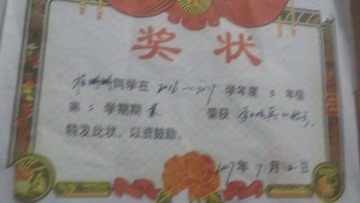 奖状
同学在 2016—2017 学年度 三 年级
第 二 学期期 末 荣获
特发此状，以资鼓励。
2017年 7 月 日